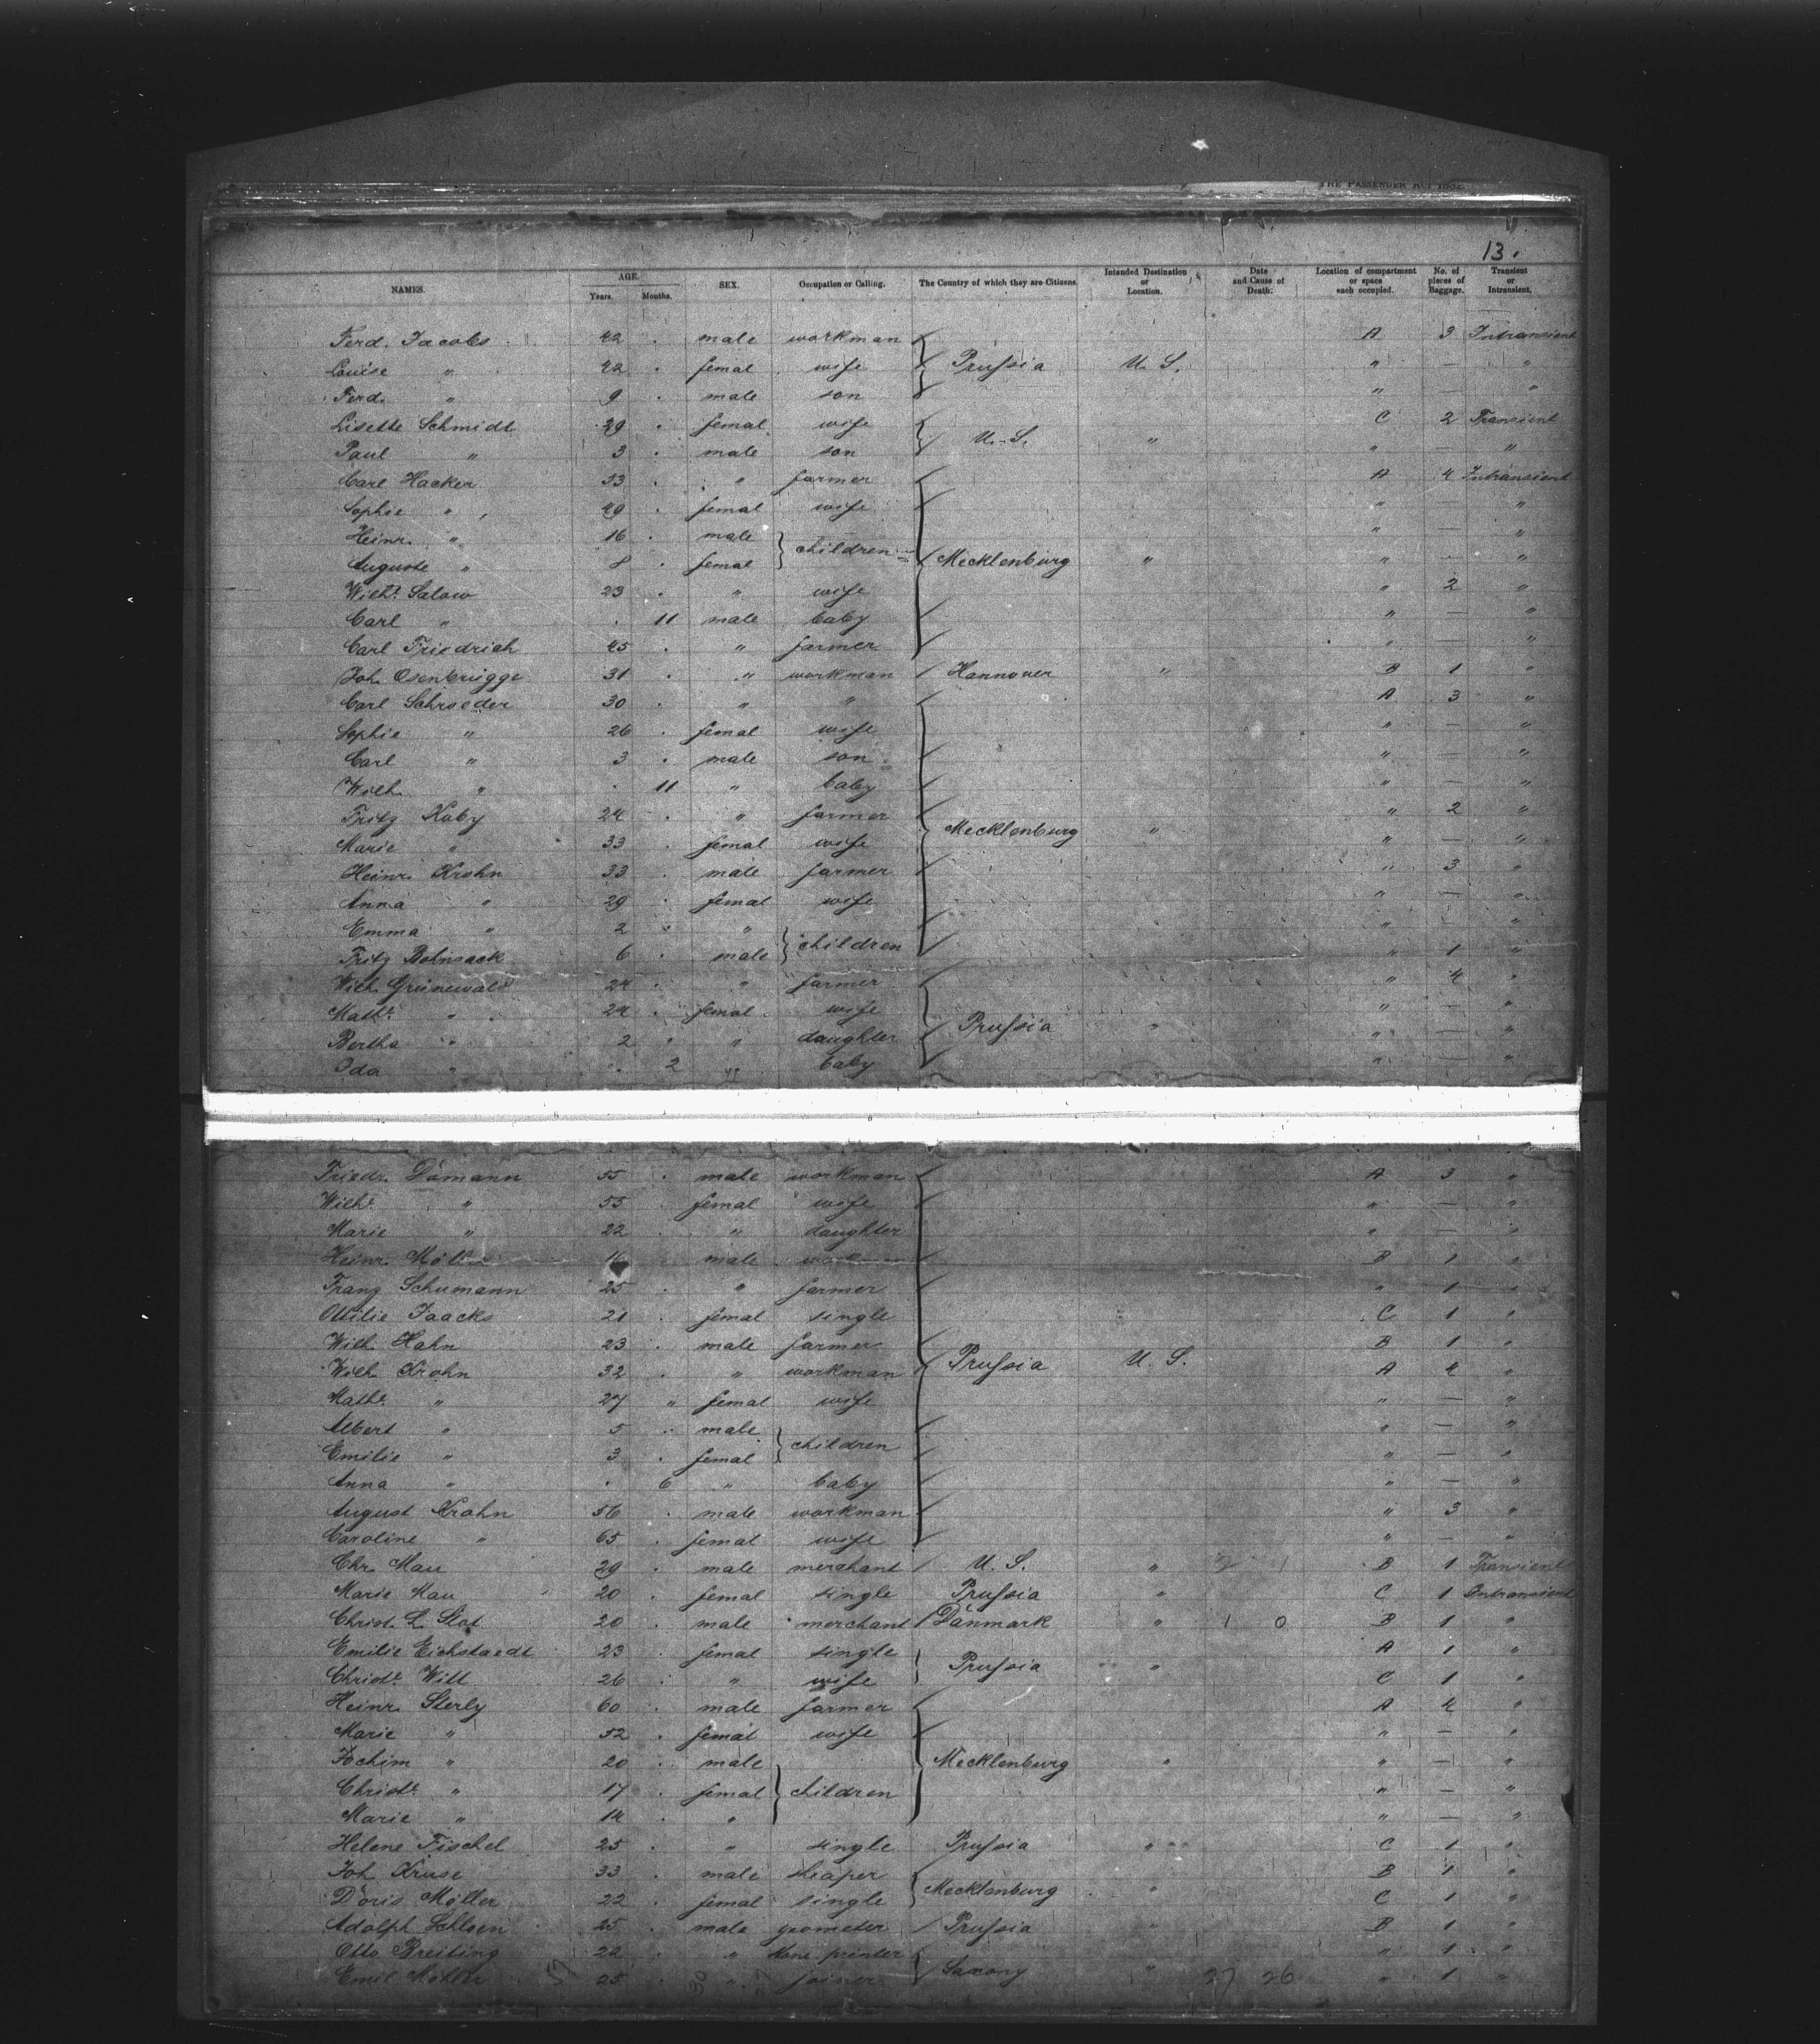 THE PASSENGER ACT 1882.
13.
NAMES. AGE. Years. Months. SEX. Occupation or Calling. The Country of which they are Citizens. Intended Destination or Location. Date and Cause of Death. Location of compartment or space each occupied. No. of pieces of Baggage. Transient or Intransient.
Ferd. Jacobs 42 . male workman A 3 Intransient
Louise " 42 . femal wife Prussia U. S. " — "
Ferd. " 9 . male son " — "
Lisette Schmidt 29 . femal wife C 2 Transient
Paul " 3 . male son U. S. " " — "
Carl Hacker 53 . " farmer A 4 Intransient
Sophie " 49 . femal wife " — "
Heinr. " 16 . male children " — "
Auguste " 8 . femal Mecklenburg " " — "
Wilhe. Salow 23 . " wife " 2 "
Carl " . 11 male baby " — "
Carl Friedrich 45 . " farmer " — "
Joh. Osenbrügge 31 . " workman Hannover " B 1 "
Carl Schroeder 30 . " " A 3 "
Sophie " 26 . femal wife " — "
Carl " 3 . male son " — "
Wilh. " . 11 " baby " — "
Fritz Koby 24 . " farmer " 2 "
Marie " 33 . femal wife Mecklenburg " " — "
Heinr. Krohn 33 . male farmer " 3 "
Anna " 29 . femal wife " — "
Emma " 2 . " children " — "
Fritz Bohnsack 6 . male " 1 "
Wilh. Grünewald 24 . " farmer " 4 "
Mathe. " 24 . femal wife " — "
Bertha " 2 . " daughter Prussia " " — "
Oda " . 2 " baby " — "
Friedr. Dämann 55 . male workman A 3 "
Wilhe. " 55 . femal wife " — "
Marie " 22 . " daughter " — "
Heinr. 16 male B 1 "
Franz Schumann 25 . " farmer " 1 "
Ottilie Jaacks 21 . femal single C 1 "
Wilh. Hahn 23 . male farmer B 1 "
Wilh. Krohn 32 . " workman Prussia U. S. A 4 "
Mathe. " 27 " femal wife " — "
Albert " 5 . male children " — "
Emilie " 3 . femal " — "
Anna " . 6 " baby " — "
August Krohn 56 . male workman " 3 "
Caroline " 65 . femal wife " — "
Chr. Mau 29 . male merchant U. S. " B 1 Transient
Marie Mau 20 . femal single Prussia " C 1 Intransient
Christ. L. Slot 20 . male merchant Dänmark " 1 0 B 1 "
Emilie Eichstaedt 23 . femal single A 1 "
Christe. Witt 26 . " wife Prussia " C 1 "
Heinr. Sterly 60 . male farmer A 4 "
Marie " 52 . femal wife " — "
Jochim " 20 . male Mecklenburg " " — "
Christe. " 17 . femal children " — "
Marie " 14 . " " — "
Helene Fischel 25 . " single Prussia " C 1 "
Joh. Kruse 33 . male B 1 "
Doris Möller 22 . femal single Mecklenburg " C 1 "
Adolph 25 . male geometer Prussia " B 1 "
Otto Breiting 22 . " printer " 1 "
Emil 25 . " joiner Saxony " 27 26 " 1 "